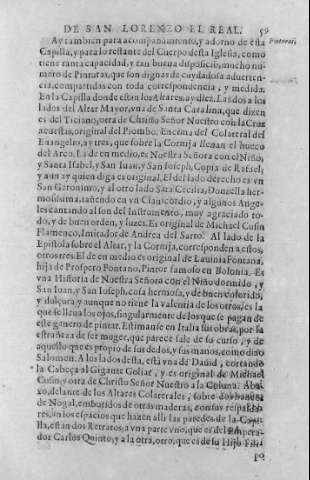 DE SAN LORENZO EL REAL. 59
Ay tambien para acompañamiento, y adorno de esta Pinturas.
Capilla, y para lo restante del Cuerpo desta Iglesia, como
tiene tanta capacidad, y tan buena disposició, mucho nu-
mero de Pinturas, que son dignas de cuydadosa aduerten-
cia, compartidas con toda correspondencia, y medida.
En la Capilla donde estan los Altares, ay diez. Las dos a los
lados del Altar Mayor, vna de Santa Catalina, que dizen
es del Ticiano, otra de Christo Señor Nuestro con la Cruz
acuestas, original del Piombo. Encima del Colateral del
Euangelio, ay tres, que sobre la Cornija llenan el hueco
del Arco. La de en medio, es Nuestra Señora con el Niño,
y Santa Isabel, y San Iuan, y San Ioseph, Copia de Rafael;
y aun ay quien diga es original. El del lado derecho es vn
San Geronimo, y al otro lado Sata Cecilia, Donzella her-
mosissima, tañendo en vn Clauicordio, y algunos Ange-
les cantando al son del Instrumento, muy agraciado to-
do, y de buen orden, y luzes. Es original de Michael Cusin
Flamenco, Imitador de Andrea del Sarto. Al lado de la
Epistola sobre el Altar, y la Cornija, corresponden a estos,
otros tres. El de en medio es original de Lauinia Fontana,
hija de Prospero Fontano, Pintor famoso en Bolonia. Es
vna Historia de Nuestra Señora con el Niño dormido, y
San Iuan, y San Ioseph, cosa hermosa, y de buen colorido,
y dulçura, y aunque no tiene la valentia de los otros, es la
que se lleua los ojos, singularmente de los que se pagan de
este genero de pintar. Estimanse en Italia sus obras, por la
estrañeza de ser muger, que parece sale de su curso, y de
aquello que es propio de sus dedos, y sus manos, como dixo
Salomon. A los lados desta, está vna de Dauid, cortando
la Cabeça al Gigante Goliat, y es original de Michael
Cusin; y otra de Christo Señor Nuestro a la Coluna. Aba-
xo, delante de los Altares Colaterales, sobre dos bancos
de Nogal, embutidos de otras maderas, con sus respalda-
res, en los espacios que hazen alli las paredes de la Capi-
lla, estan dos Retratos, a vna parte vno, que es del Empera-
dor Carlos Quinto, y a la otra, otro, que es de su Hijo Fili-
po